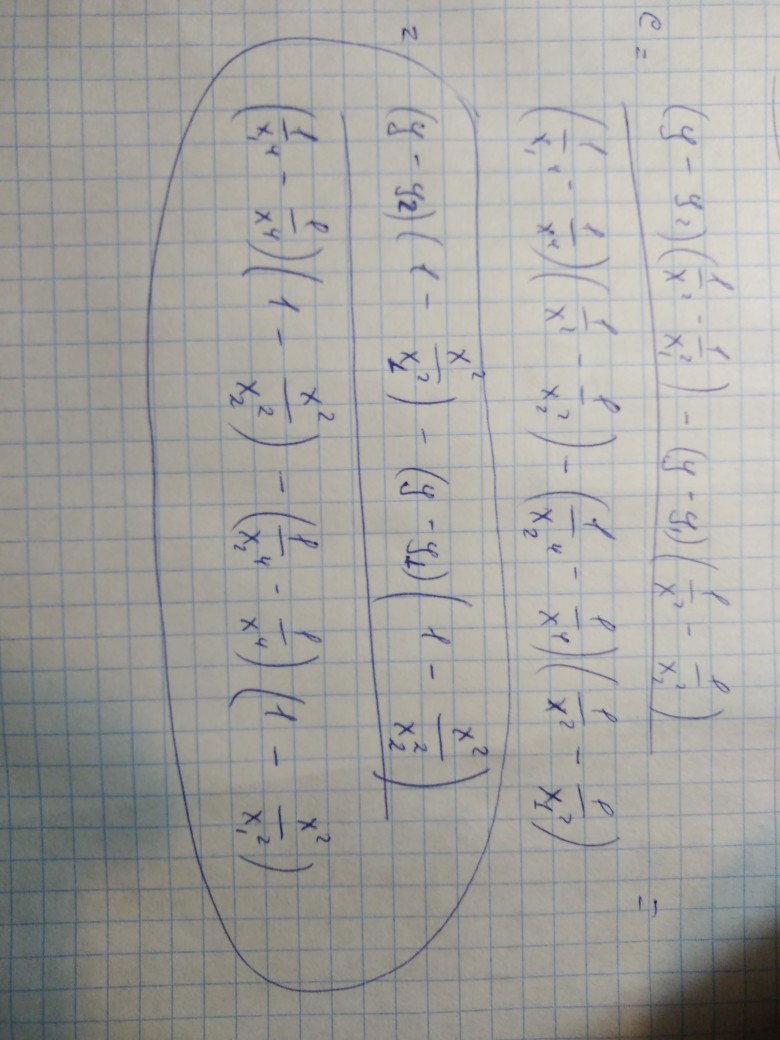 c = ((y - y₂)(1/x² - 1/x₁²) - (y - y₁)(1/x² - 1/x₂²)) / ((1/x₁⁴ - 1/x⁴)(1/x² - 1/x₂²) - (1/x₂⁴ - 1/x⁴)(1/x² - 1/x₁²)) =
= ((y - y₂)(1 - x²/x₁²) - (y - y₁)(1 - x²/x₂²)) / ((1/x₁⁴ - 1/x⁴)(1 - x²/x₂²) - (1/x₂⁴ - 1/x⁴)(1 - x²/x₁²))